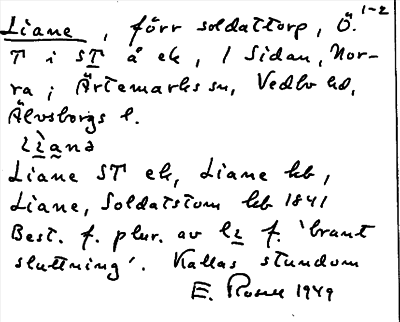 1-2
Liane, förr soldattorp, Ö.
T i ST å ek, / Sidan, Nor-
ra; Ärtemarks sn, Vedbo hd,
Älvsborgs l.
Liane ST ek, Liane kb,
Liane, Soldatstom kb 1841
Best. f. plur. av f. 'brant
sluttning'. Kallas stundom
E. Rosell 1949